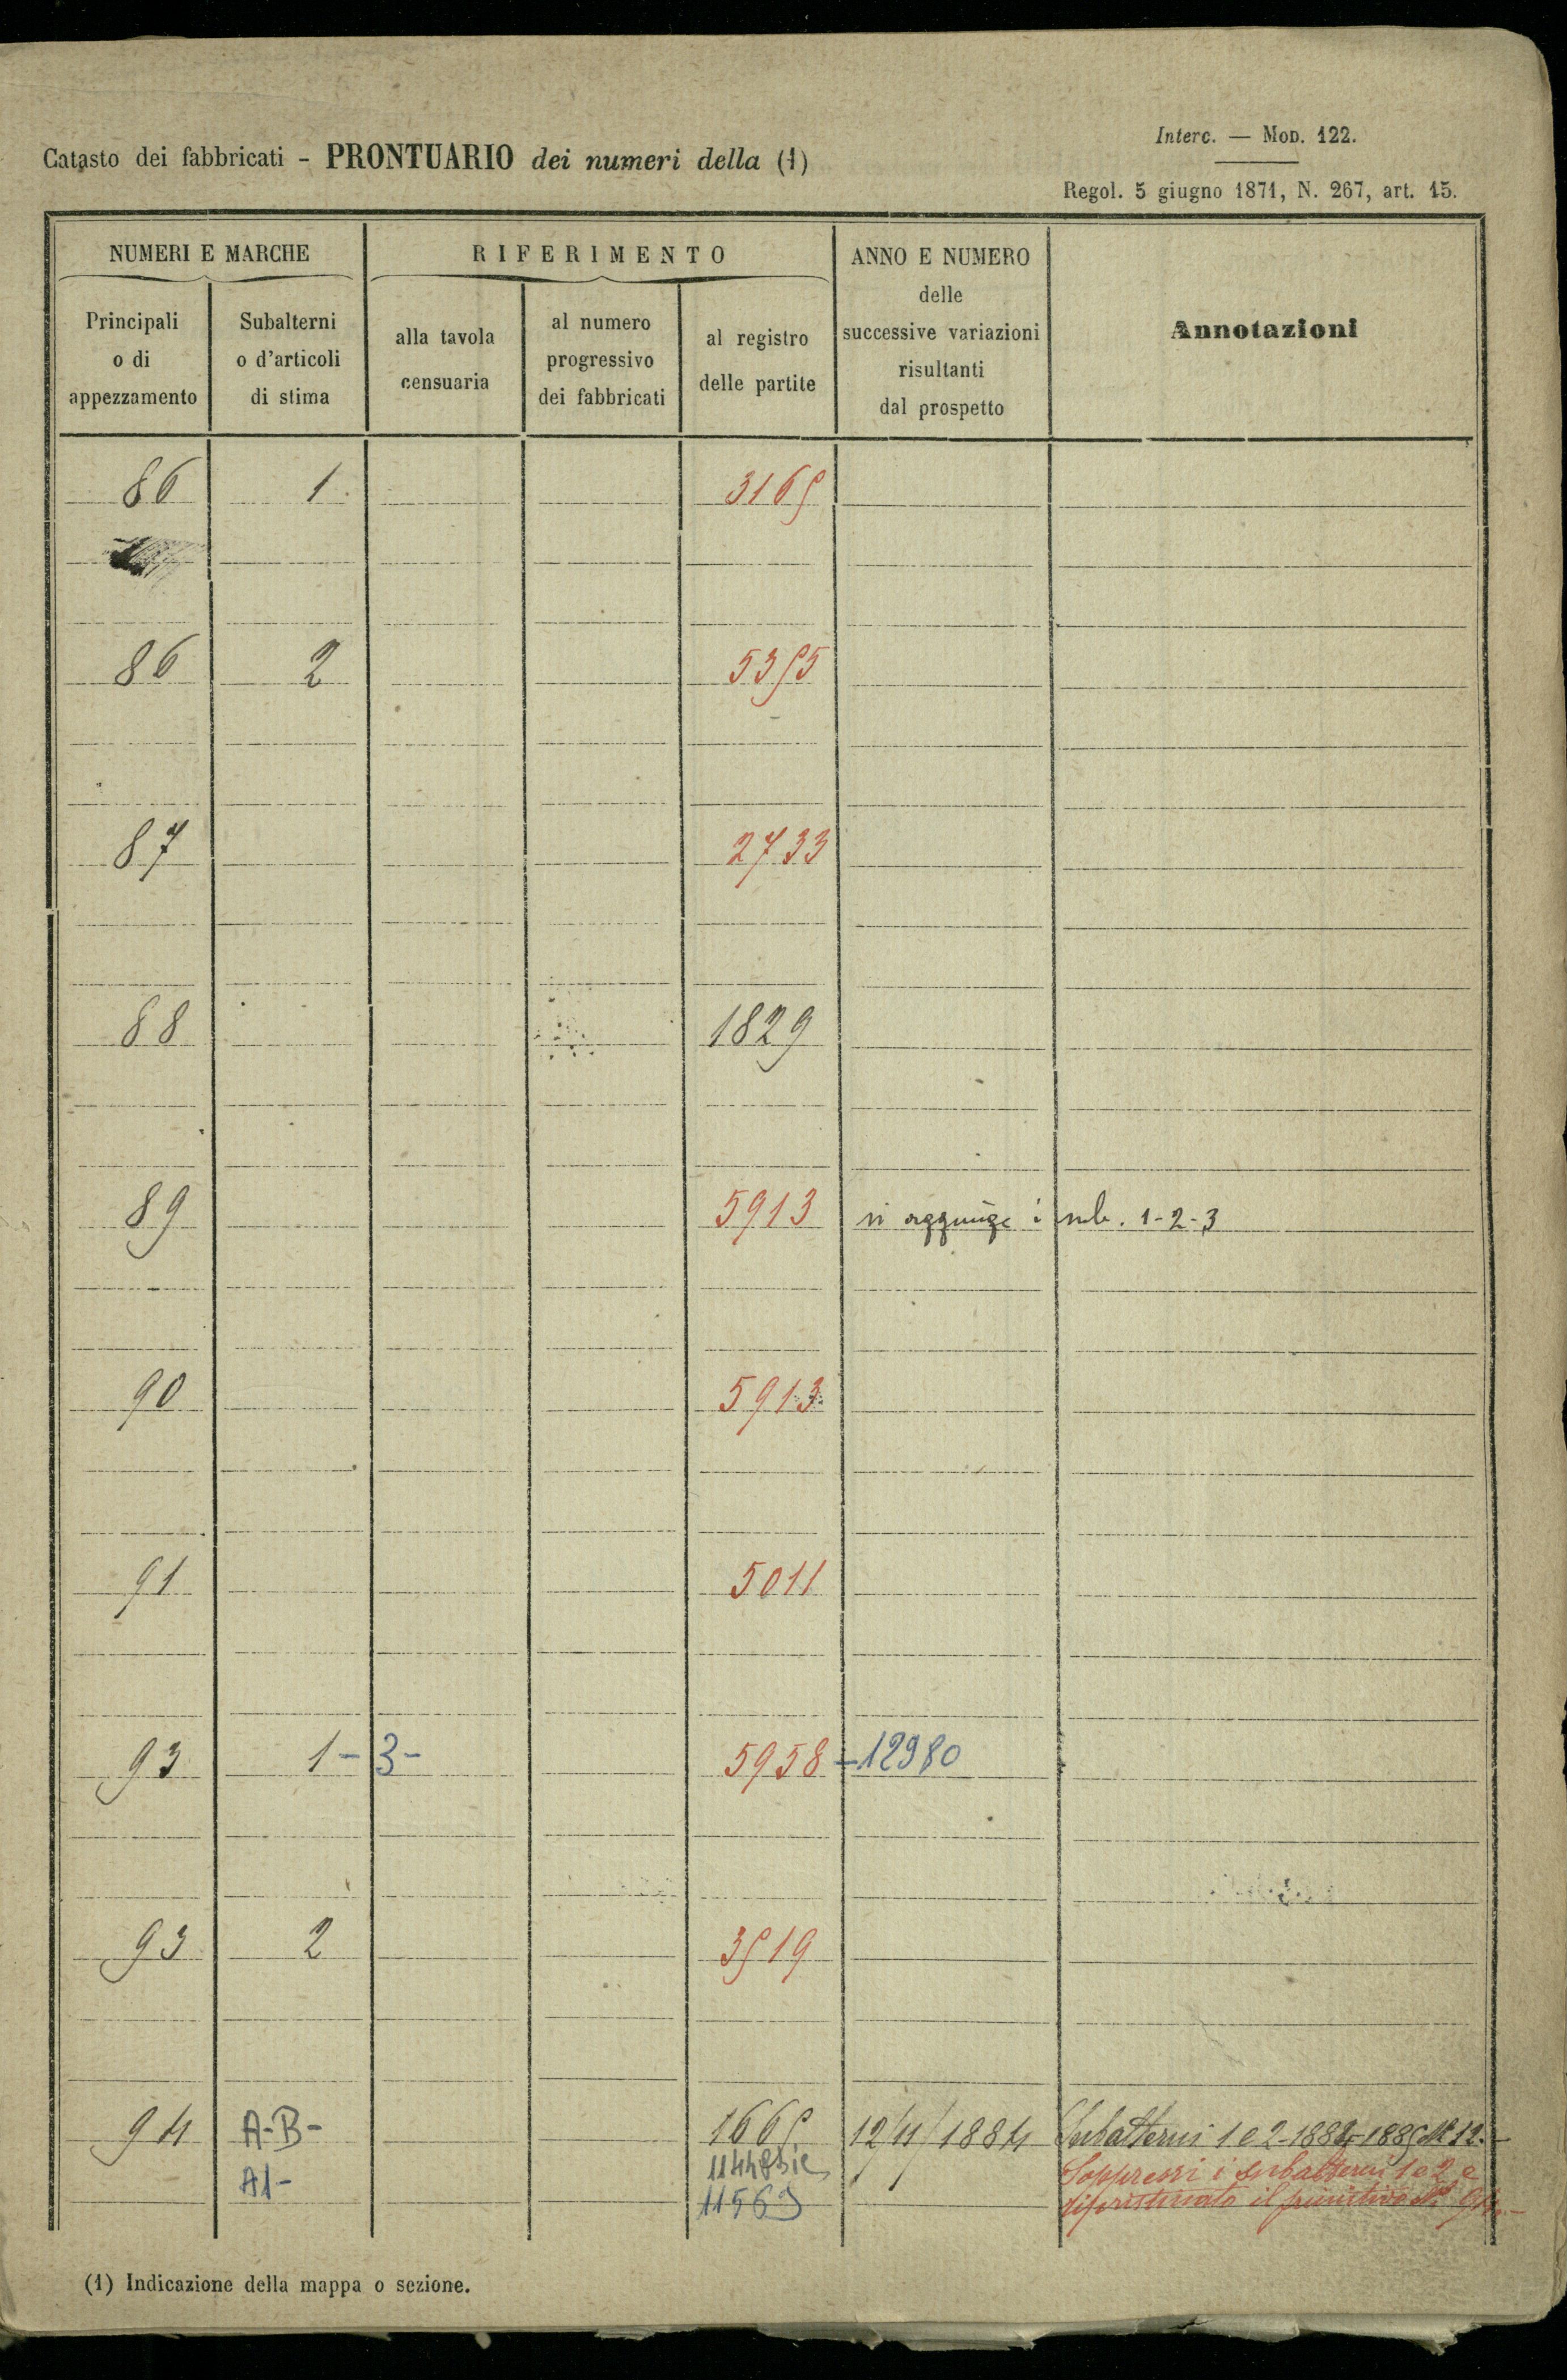 Interc. — Mod. 122.
Catasto dei fabbricati - PRONTUARIO dei numeri della (1)
Regol. 5 giugno 1871, N. 267, art. 15.
NUMERI E MARCHE
RIFERIMENTO
ANNO E NUMERO delle successive variazioni risultanti dal prospetto
Annotazioni
Principali o di appezzamento
Subalterni o d'articoli di stima
alla tavola censuaria
al numero progressivo dei fabbricati
al registro delle partite
86 1
86 2
87 2733
88 1829
89 5913 si aggiunge i sub. 1-2-3
90 5913
91 5011
93 1-3- 5958-12980
93 2
94 A-B- 12/11/1884 Subalterni 1 e 2
A1- Soppressi i subalterni 1 e 2 e
11569 ripristinato il primitivo N. 94.-
(1) Indicazione della mappa o sezione.